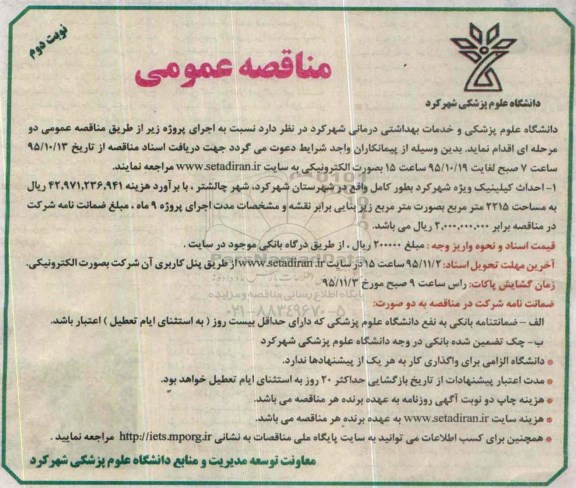 نوبت دوم
مناقصه عمومی
دانشگاه علوم پزشکی شهرکرد
دانشگاه علوم پزشکی و خدمات بهداشتی درمانی شهرکرد در نظر دارد نسبت به اجرای پروژه زیر از طریق مناقصه عمومی دو
مرحله ای اقدام نماید. بدین وسیله از پیمانکاران واجد شرایط دعوت می گردد جهت دریافت اسناد مناقصه از تاریخ ۹۵/۱۰/۱۳
ساعت ۷ صبح لغایت ۹۵/۱۰/۱۹ ساعت ۱۵ بصورت الکترونیکی به سایت www.setadiran.ir مراجعه نمایند.
۱- احداث کیلینیک ویژه شهرکرد بطور کامل واقع در شهرستان شهرکرد، شهر چالشتر ، با برآورد هزینه ۴۲,۹۷۱,۲۳۶,۹۴۱ ریال
به مساحت ۲۲۱۵ متر مربع بصورت متر مربع زیر بنایی برابر نقشه و مشخصات مدت اجرای پروژه ۹ ماه ، مبلغ ضمانت نامه شرکت
در مناقصه برابر ۲,۰۰۰,۰۰۰,۰۰۰ ریال می باشد.
قیمت اسناد و نحوه واریز وجه : مبلغ ۲۰۰۰۰۰ ریال ، از طریق درگاه بانکی موجود در سایت .
آخرین مهلت تحویل اسناد: ۹۵/۱۱/۲ ساعت ۱۵ در سایت www.setadiran.ir از طریق پنل کاربری آن شرکت بصورت الکترونیکی.
زمان گشایش پاکات: راس ساعت ۹ صبح مورخ ۹۵/۱۱/۳
پایگاه اطلاع رسانی مناقصه و مزایده
ضمانت نامه شرکت در مناقصه به دو صورت:
۰۲۱-۸۸۳۴۹۶۷۰-۵
الف - ضمانتنامه بانکی به نفع دانشگاه علوم پزشکی که دارای حداقل بیست روز ( به استثنای ایام تعطیل ) اعتبار باشد.
ب- چک تضمین شده بانکی در وجه دانشگاه علوم پزشکی شهرکرد
● دانشگاه الزامی برای واگذاری کار به هر یک از پیشنهادها ندارد.
● مدت اعتبار پیشنهادات از تاریخ بازگشایی حداکثر ۲۰ روز به استثنای ایام تعطیل خواهد بود.
● هزینه چاپ دو نوبت آگهی روزنامه به عهده برنده هر مناقصه می باشد.
● هزینه سایت www.setadiran.ir به عهده برنده هر مناقصه می باشد.
● همچنین برای کسب اطلاعات می توانید به سایت پایگاه ملی مناقصات به نشانی http://iets.mporg.ir مراجعه نمایید .
معاونت توسعه مدیریت و منابع دانشگاه علوم پزشکی شهرکرد